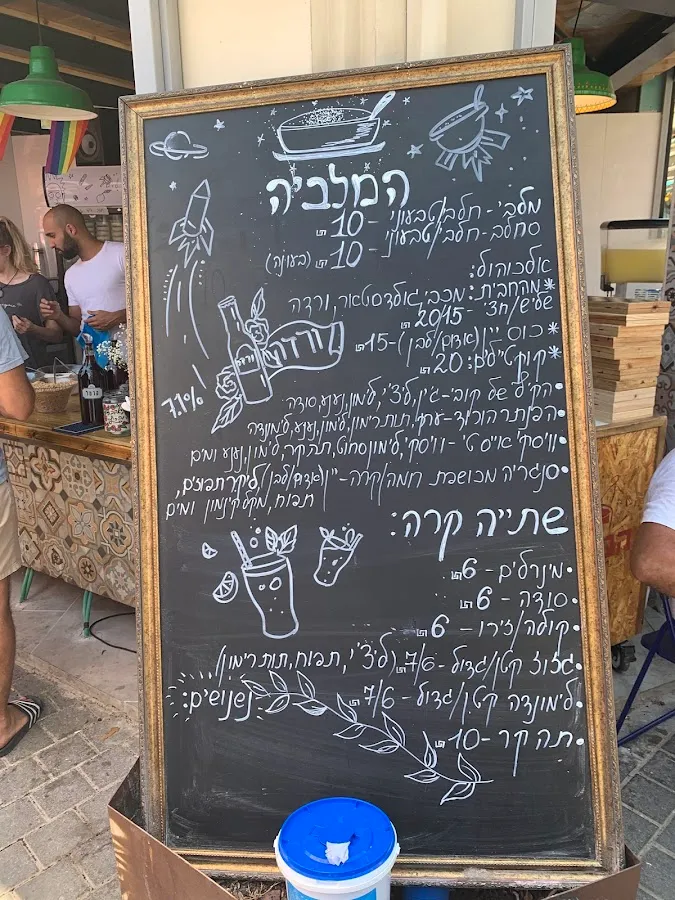 המלביה
מלבי - חלבי/טבעוני - 10 ₪
סחלב - חלבי/טבעוני - 10 ₪ (בעונה)
אלכוהול:
*מהחבית: מכבי, גולדסטאר, ורדה
שליש/חצי 20/15 ₪
*כוס יין (אדום/לבן) - 15 ₪
*קוקטיילים: 20 ₪
•הקיל של קובי - ג'ין, ליצ'י, לימון, נענע, סודה
•הפנתר הורוד - ערק, תות רימון, לימון, נענע, לימונדה
•וויסקי אייס טי - וויסקי, לימון סחוט, תה קר, לימון, נענע ומים
•סנגריה מכושפת חמה/קרה - יין (אדום/לבן), ליקר תפוזים,
תפוח, מקל קינמון ומים
ורדה
ורדה
7.1%
שתייה קרה:
•מינרלים - 6 ₪
•סודה - 6 ₪
•קולה/זירו - 6 ₪
•גזוז קטן/גדול - 7/6 ₪ (ליצ'י, תפוח, תות רימון)
•לימונדה קטן/גדול - 7/6 ₪
•תה קר - 10 ₪
נשנושים: